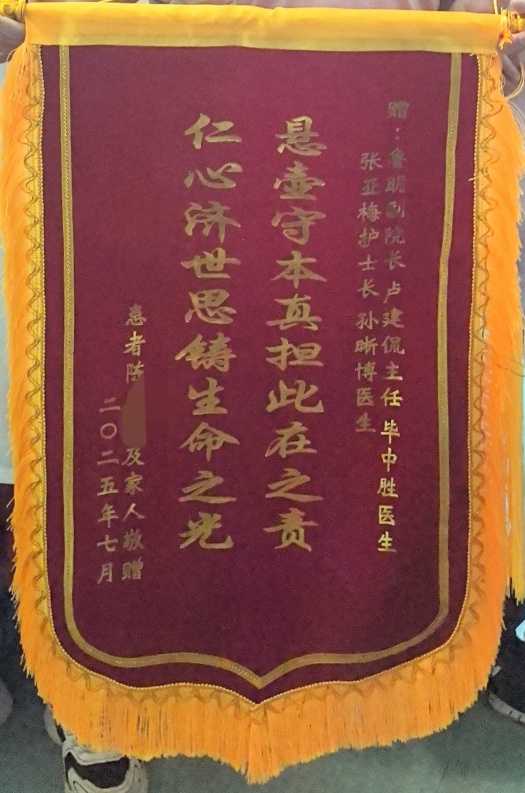 赠：鲁明副院长 卢建侃主任 毕中胜医生
张亚梅护士长 孙晰博医生
悬壶守本真担此在之责
仁心济世思铸生命之光
患者陈 及家人敬赠
二〇二五年七月